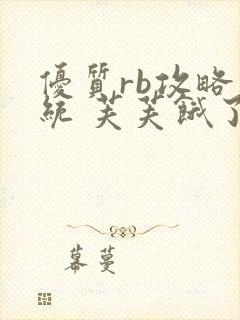 優質rb攻略
統 芙芙餓了
幕蔓